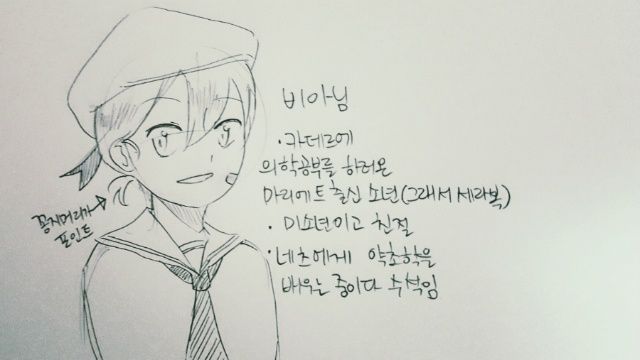 비아님
· 카데르에
의학공부를 하러온
마리에트 출신 소년(그래서 세라복)
· 미소년이고 친절
· 네츠에게 약초학을
배우는 중이다 수석임
꽁지머리가
포인트